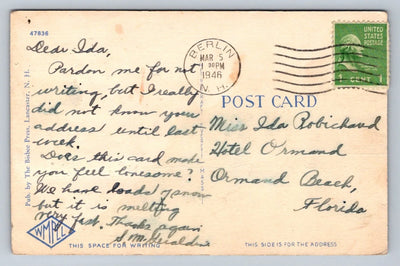 47636
Dear Ida,
Pardon me for not
writing, but I really
did not know your
address until last
week.
Does this card make
you feel lonesome?
We have loads of snow
but it is melting
very fast. Thanks again
Pub. by The Bisbee Press, Lancaster, N. H.
WMPL
THIS SPACE FOR WRITING
BERLIN
MAR 5
1 PM
1946
N. H.
UNITED STATES
POSTAGE
1 CENT 1
POST CARD
Miss Ida Robichaud
Hotel Ormond
Ormond Beach,
Florida
THIS SIDE IS FOR THE ADDRESS